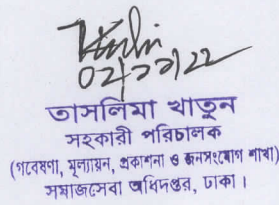 ০২/১১/২২
তাসলিমা খাতুন
সহকারী পরিচালক
(গবেষণা, মূল্যায়ন, প্রকাশনা ও জনসংযোগ শাখা)
সমাজসেবা অধিদপ্তর, ঢাকা।